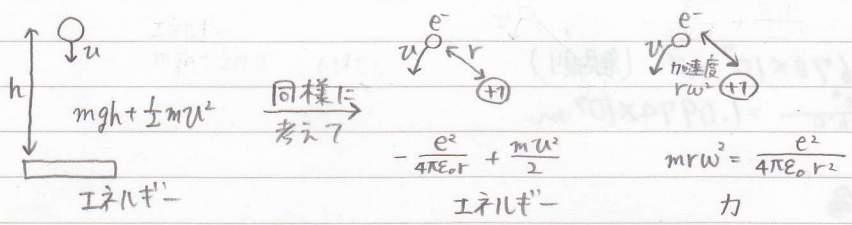 h
u
mgh+½mu²
エネルギー
同様に
考えて
e⁻
u
r
+1
-e²/4πε₀r + mu²/2
エネルギー
e⁻
u
加速度
rω²
+1
mrω² = e²/4πε₀r²
力